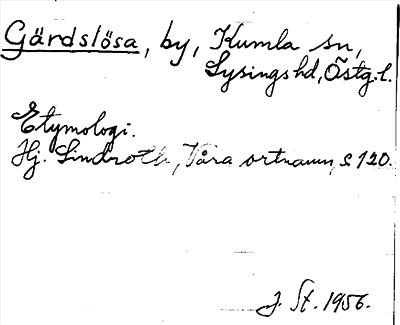 Gärdslösa, by, Kumla sn,
Lysings hd, Östg. l.
Etymologi.
Hj. Lindroth, Våra ortnamn, s 120.
J. St. 1956.